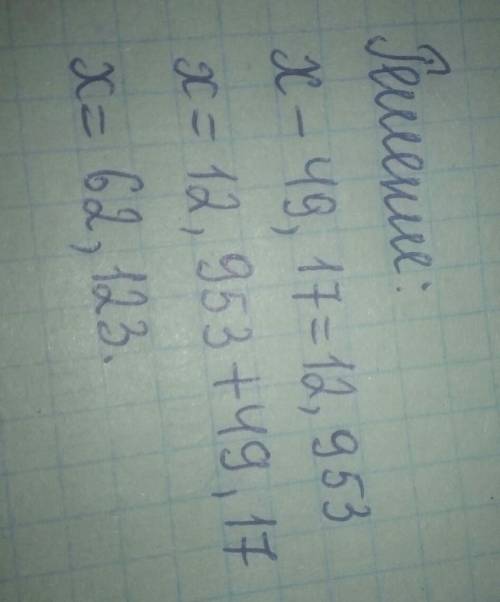 Решение:
x - 49,17 = 12,953
x = 12,953 + 49,17
x = 62,123.